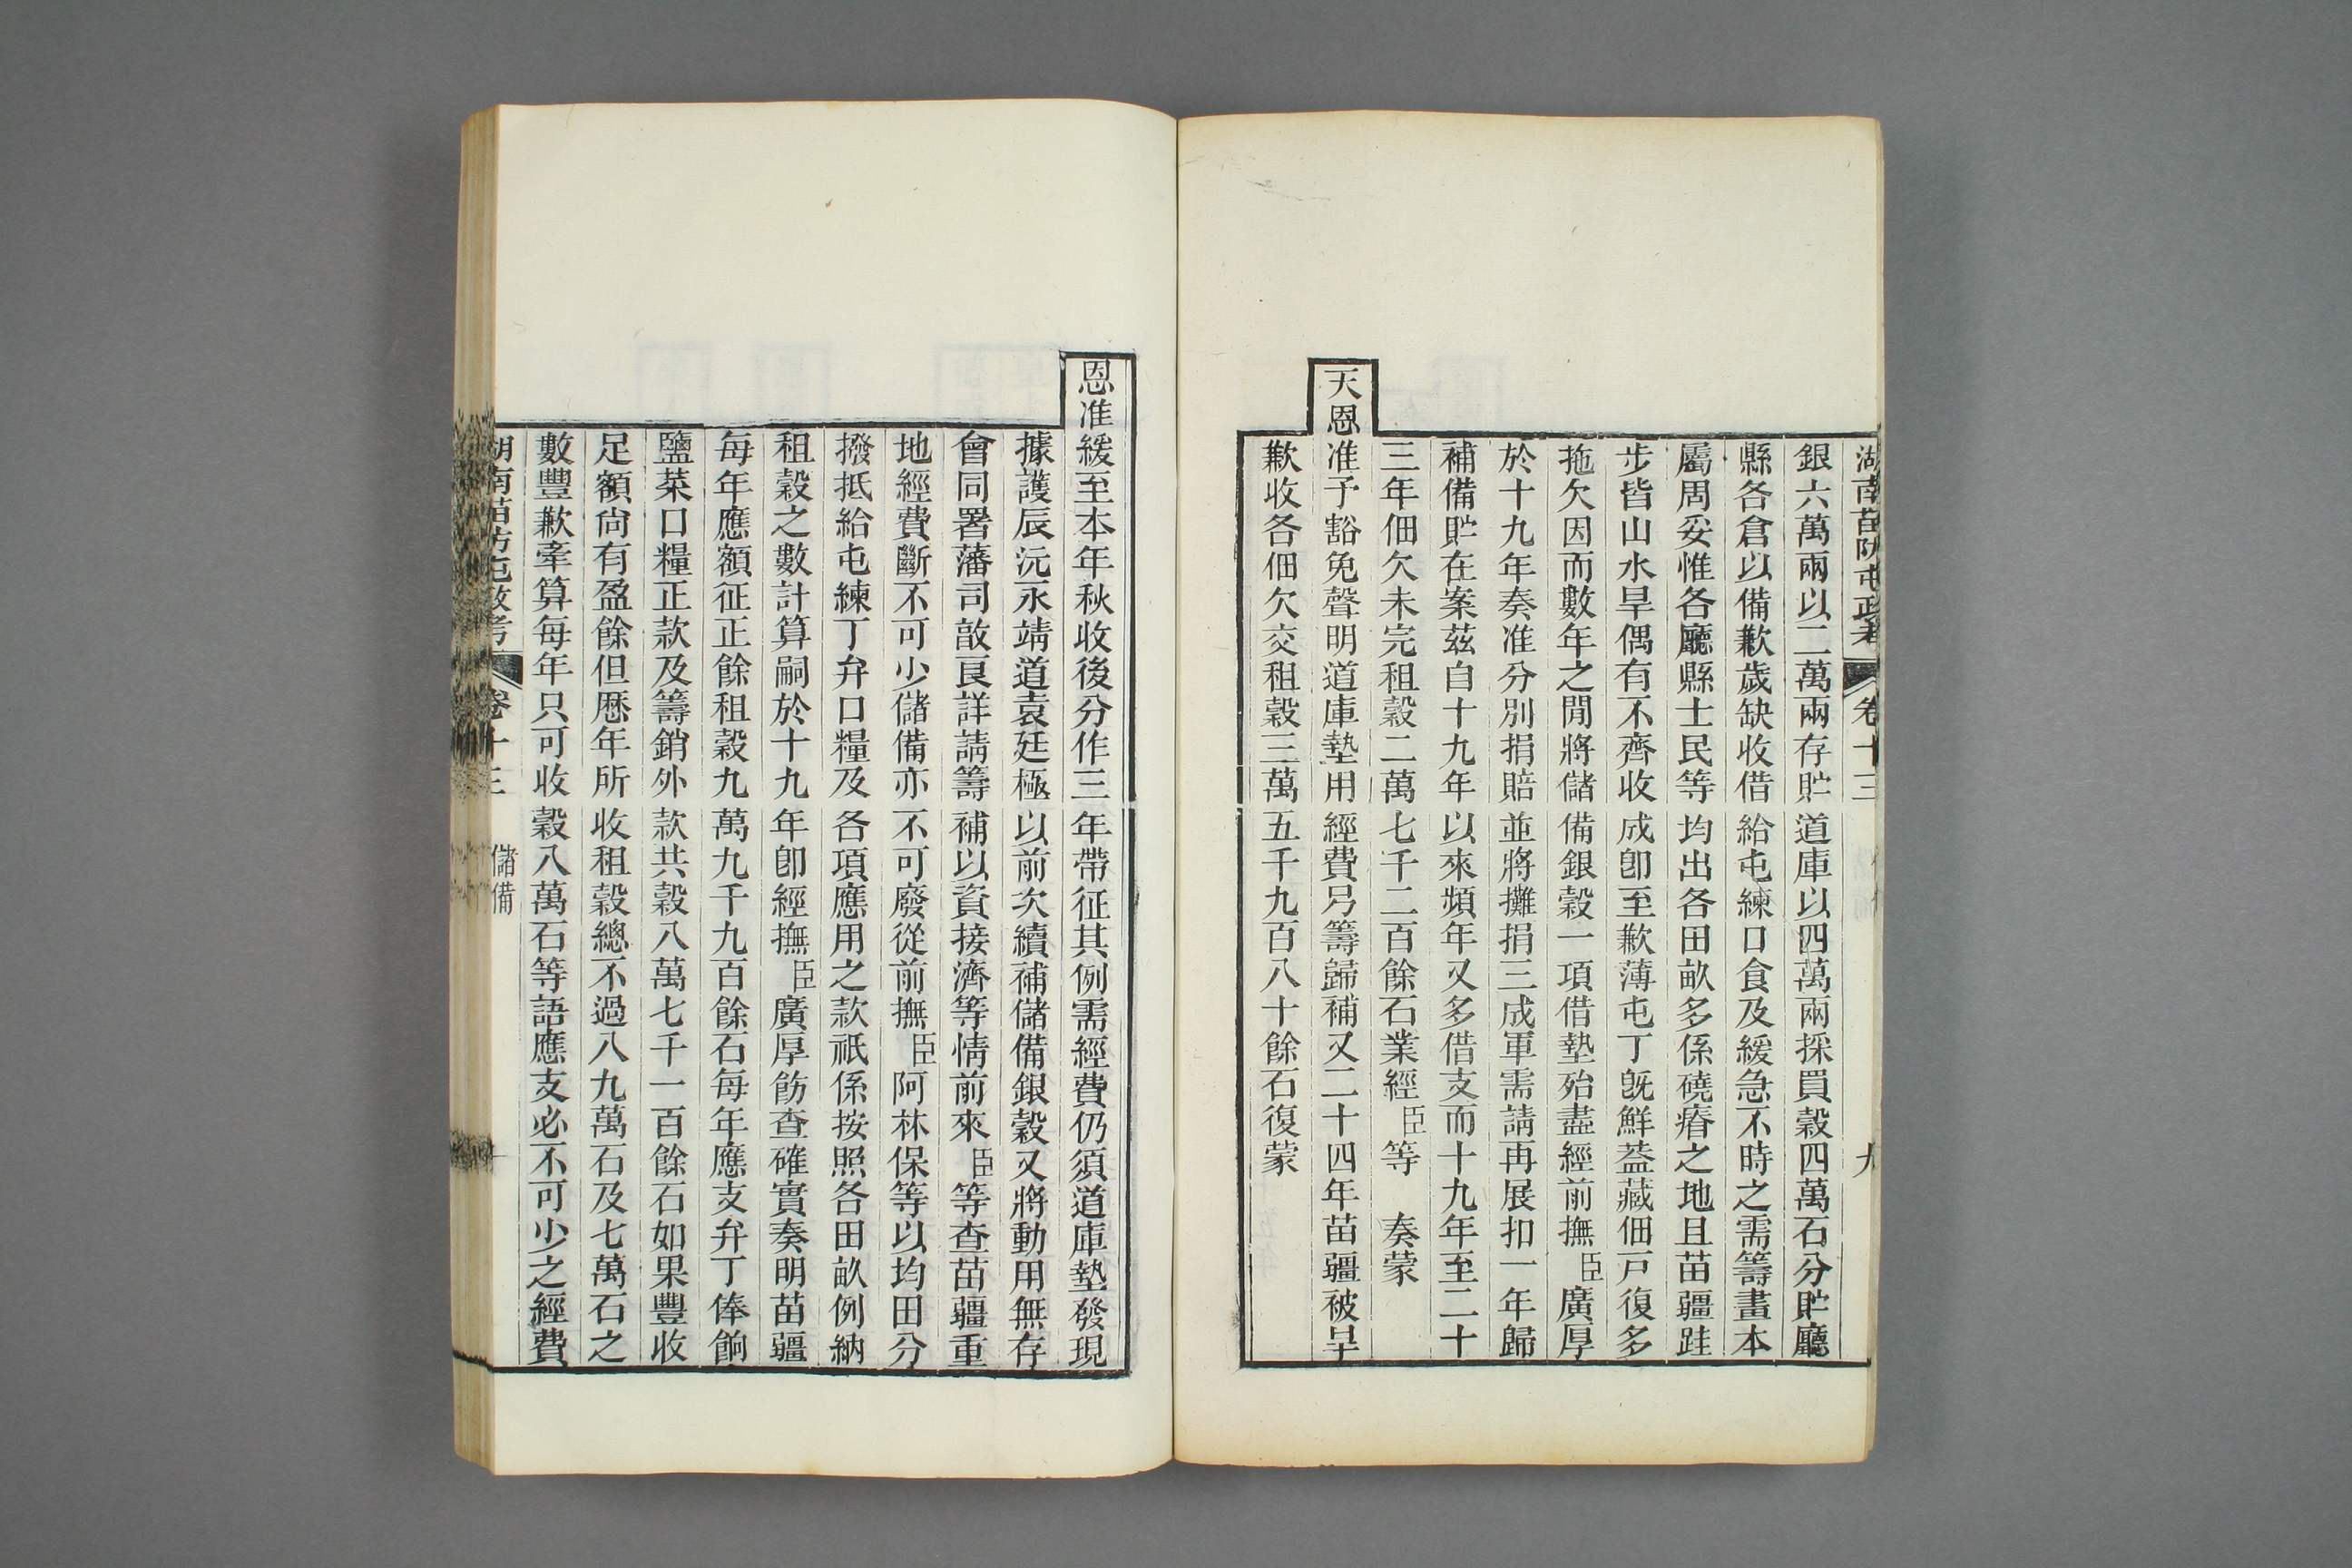 湖南苗防屯政考 卷十三 九
銀六萬兩以二萬兩存貯道庫以四萬兩採買穀四萬石分貯廳
縣各倉以備歉歲缺收借給屯練口食及緩急不時之需籌畫本
屬周妥惟各廳縣士民等均出各田畝多係磽瘠之地且苗疆跬
步皆山水旱偶有不齊收成卽至歉薄屯丁旣鮮葢藏佃戸復多
拖欠因而數年之閒將儲備銀穀一項借墊殆盡經前撫臣廣厚
於十九年奏准分別捐賠並將攤捐三成軍需請再展扣一年歸
補備貯在案茲自十九年以來頻年又多借支而十九年至二十
三年佃欠未完租穀二萬七千二百餘石業經臣等 奏蒙
天恩准予豁免聲明道庫墊用經費另籌歸補又二十四年苗疆被旱
歉收各佃欠交租穀三萬五千九百八十餘石復蒙
恩准緩至本年秋收後分作三年帶征其例需經費仍須道庫墊發現
據護辰沅永靖道袁廷極以前次續補儲備銀穀又將動用無存
會同署藩司敳良詳請籌補以資接濟等情前來臣等查苗疆重
地經費斷不可少儲備亦不可廢從前撫臣阿林保等以均田分
撥抵給屯練丁弁口糧及各項應用之款祇係按照各田畝例納
租穀之數計算嗣於十九年卽經撫臣廣厚飭查確實奏明苗疆
每年應額征正餘租穀九萬九千九百餘石每年應支弁丁俸餉
鹽菜口糧正款及籌銷外款共穀八萬七千一百餘石如果豐收
足額尙有盈餘但歷年所收租穀總不過八九萬石及七萬石之
數豐歉牽算每年只可收穀八萬石等語應支必不可少之經費
湖南苗防屯政考 卷十三 儲備